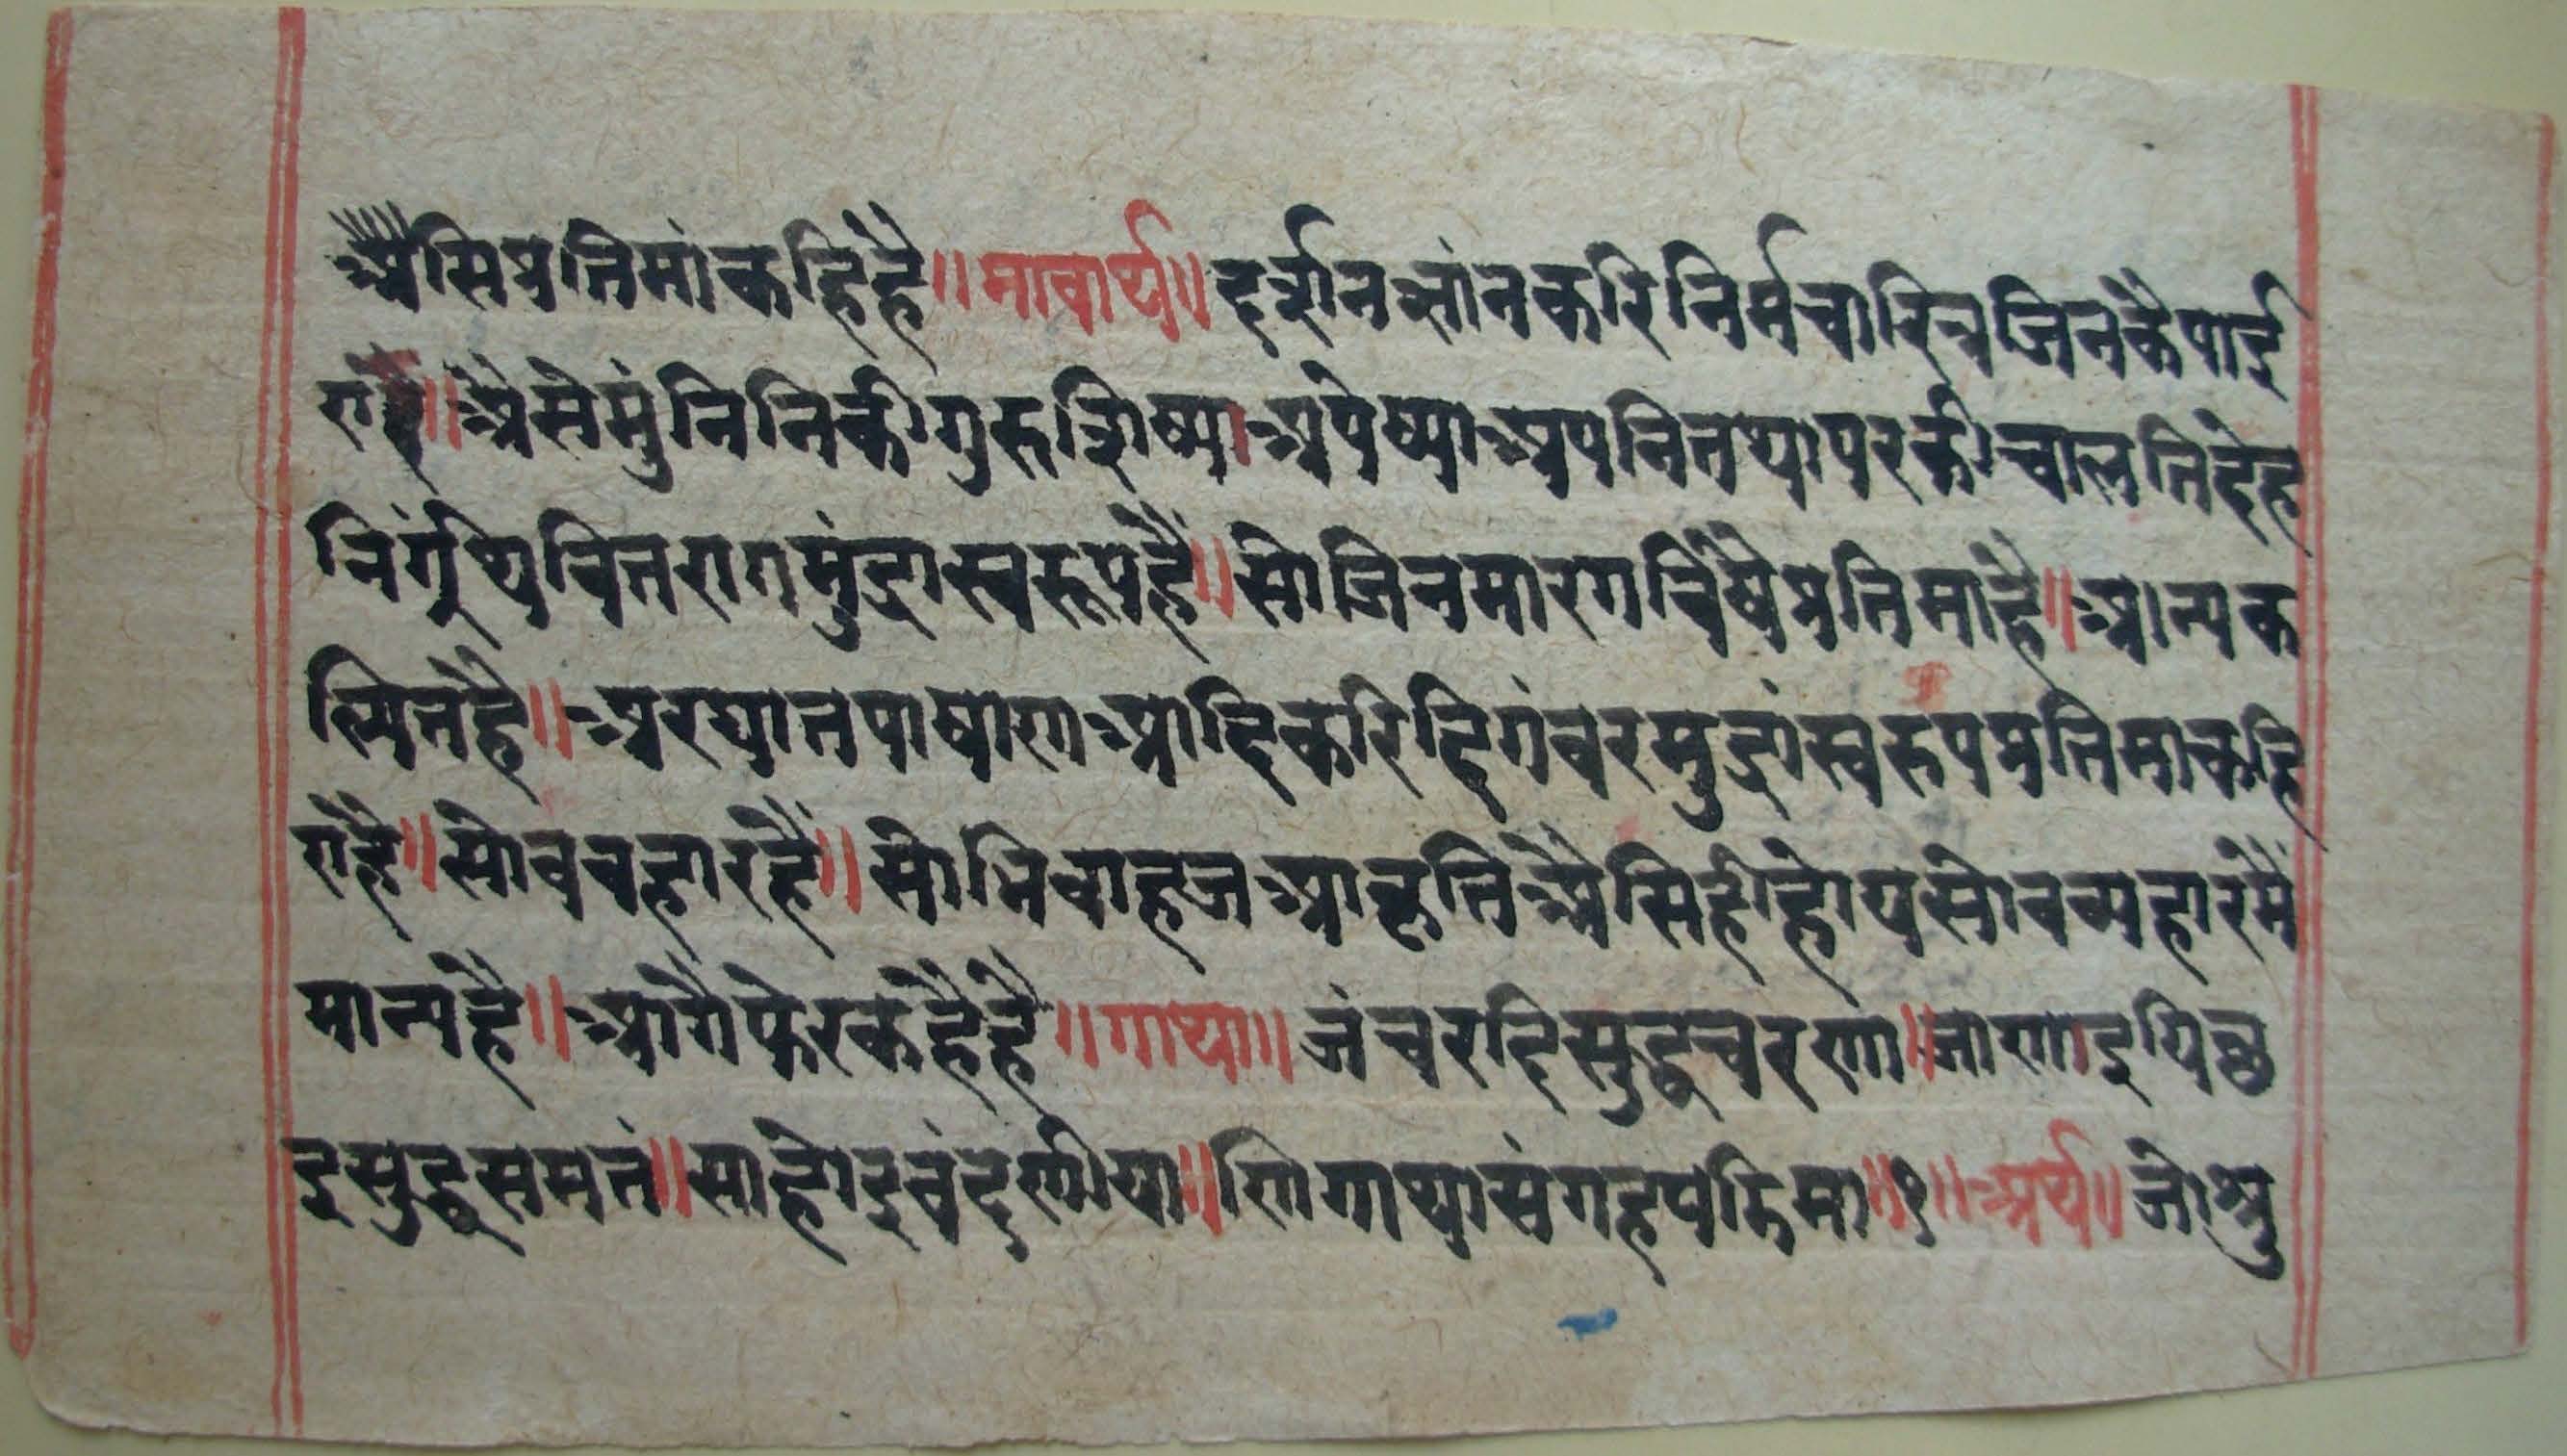 अैसिप्रतिमांकहिहै॥भावार्थ॥दर्शनज्ञांनकरिनिर्मचारित्रजिनकैपाई
एहै॥अैसेमुंनिनिकीगुरुशिष्याअपेष्याअपनितथापरकीचालतिदेह
निर्ग्रंथवितरागमुंद्रास्वरूपहैं॥सोजिनमारगविंषैप्रतिमांहै॥अान्यक
ल्पितहै॥अरधातपाषाणआदिकरिदिगंबरमुद्रांस्वरुपप्रतिमाकहि
एहै॥सोववहारहैं॥सोभिवाहजआकृतिअैसिहीहोयसोवव्यहारमैं
मान्यहै॥आगैफेरकहैहै॥गाथा॥जंचरदिसुद्धचरणा॥जाणइयिछ
इसुद्धसमतं॥साहोइवंदणीया॥णिगाथासंगहपडिमा॥१॥अर्थ॥जोश्रु